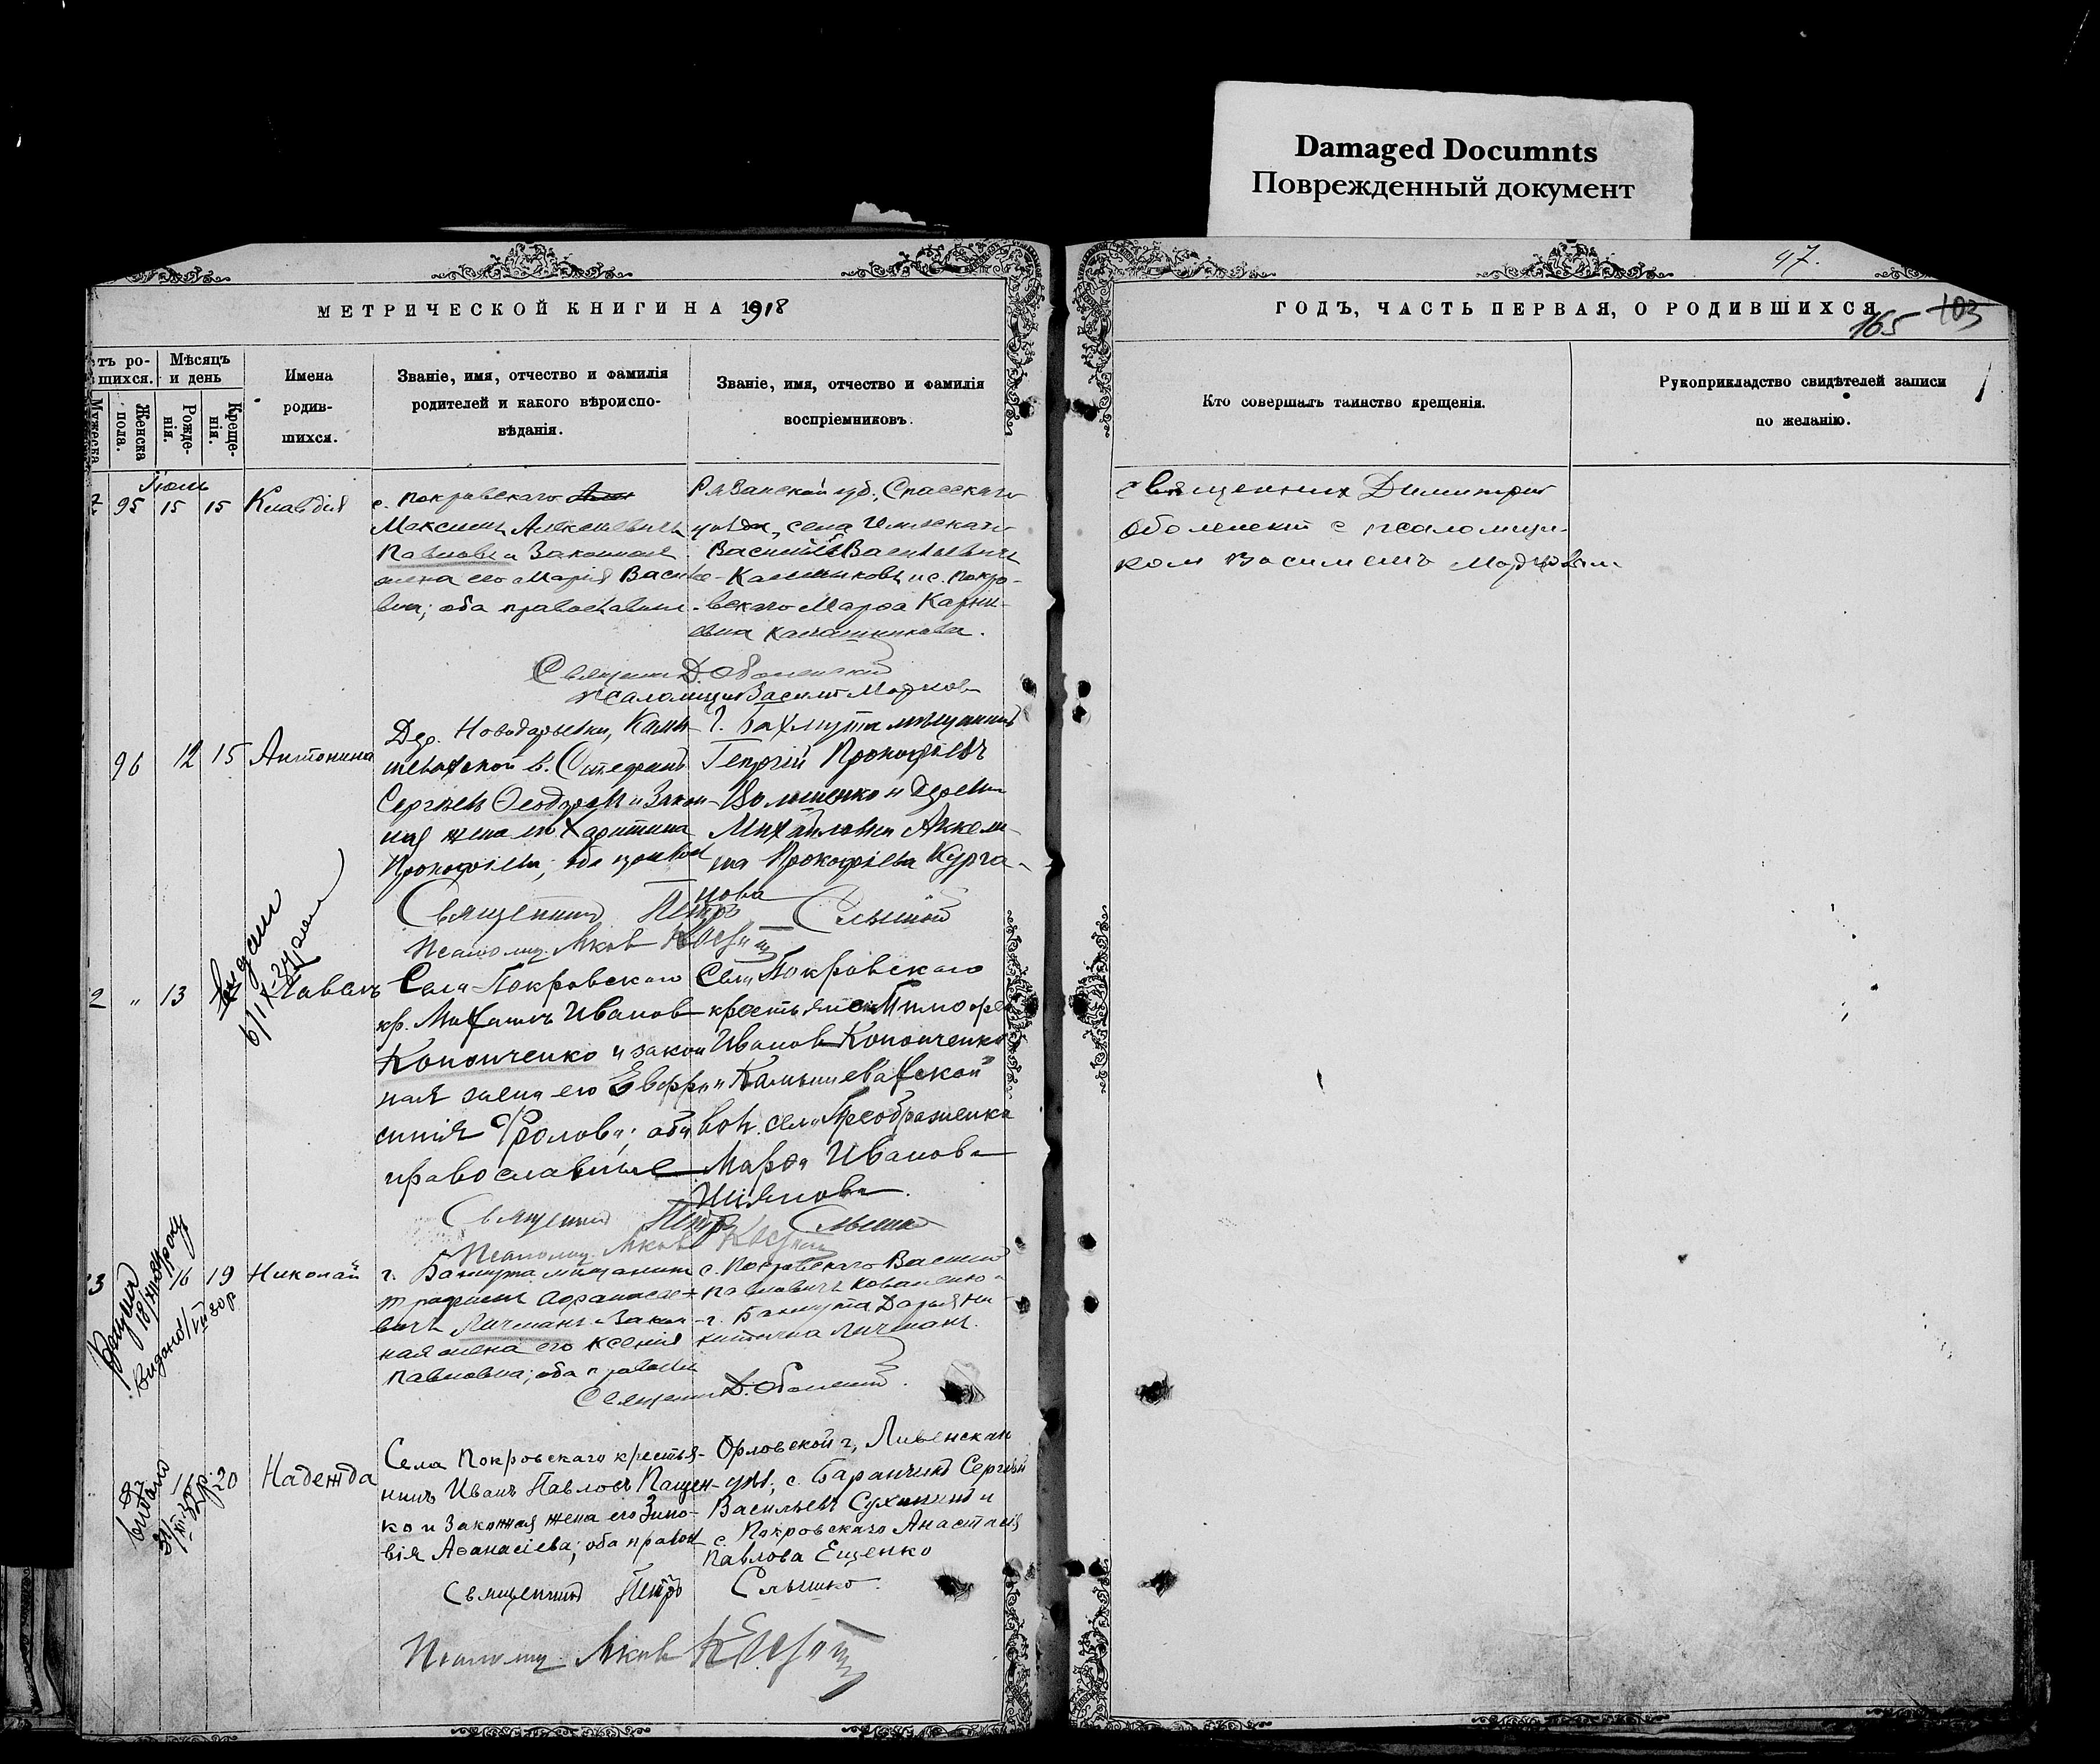 Damaged Documnts
Поврежденный документ
МЕТРИЧЕСКОЙ КНИГИ НА 1918
ГОДЪ, ЧАСТЬ ПЕРВАЯ, О РОДИВШИХСЯ
47.
165 103
тъ ро-
шихся.
Мѣсяцъ
и день
Мужеска
Женска
пола.
Рожде-
нія.
Креще-
нія.
Имена
родив-
шихся.
Званіе, имя, отчество и фамилія
родителей и какого вѣроиспо-
вѣданія.
Званіе, имя, отчество и фамилія
воспріемниковъ.
Кто совершалъ таинство крещенія.
Рукоприкладство свидѣтелей записи
по желанію.
Июль
95 15 15 Клавдія
с. Покровскаго
Максимъ Алексѣевичъ
Павловъ и законная
жена его Марія Василь-
вна; оба православн.
Рязанской губ., Спасскаго
уѣзда, села
Василій Васильевичъ
Калашниковъ и с. Покро-
вскаго Марѳа Карни-
евна Калашникова.
Священникъ Д. Оболенскій
Псаломщ. Василій Марковъ
Священникъ Димитрій
Оболенскій с псаломщи-
ком Василіемъ Марковым
96 12 15 Антонина
Дер. Новодарьевки, Камы-
шевахской в. Стефанъ
Сергѣевъ Ѳеодоровъ и закон-
ная жена его Харитина
Прокофіева; оба правосл
г. Бахмута мѣщанинъ
Георгій Прокофіевъ
и деревни
Михайловки Аккели-
на Прокофіева Курга-
нова
Священникъ Петръ Слышко
Псаломщ. Яковъ
2 " 13 Павелъ
выдали
Села Покровскаго
кр. Михаилъ Иванов
Кононченко и закон
ная жена его Евфро
синія Фролова; оба
православные
Села Покровскаго
крестьянинъ Тимофей
Иванов Кононченко
Камышевахской
вол. села Преображенка
Марѳа Иванова
Шіянова.
Священникъ Петръ Слышко
Псаломщ. Яковъ
3 16 19 Николай
г. Бахмута мѣщанинъ
Трофимъ Афанасіе-
вичъ Личманъ закон-
ная жена его Ксенія
Павловна; оба правосл
с. Покровскаго Василій
Павловичъ Коваленко и
г. Бахмута Дарья Ни-
китична Личманъ.
Священникъ Д. Оболенскій.
видано
20 Надежда
Села Покровскаго крестья-
нинъ Иванъ Павловъ Пащен-
ко и законная жена его Зино-
вія Аѳанасіева; оба правосл
Орловской г., Ливенскаго
уѣз., с. Баранчика Сергѣй
Васильевъ Сухининъ и
с. Покровскаго Анастасія
Павлова Ещенко
Священникъ Петръ Слышко.
Псаломщ. Яковъ